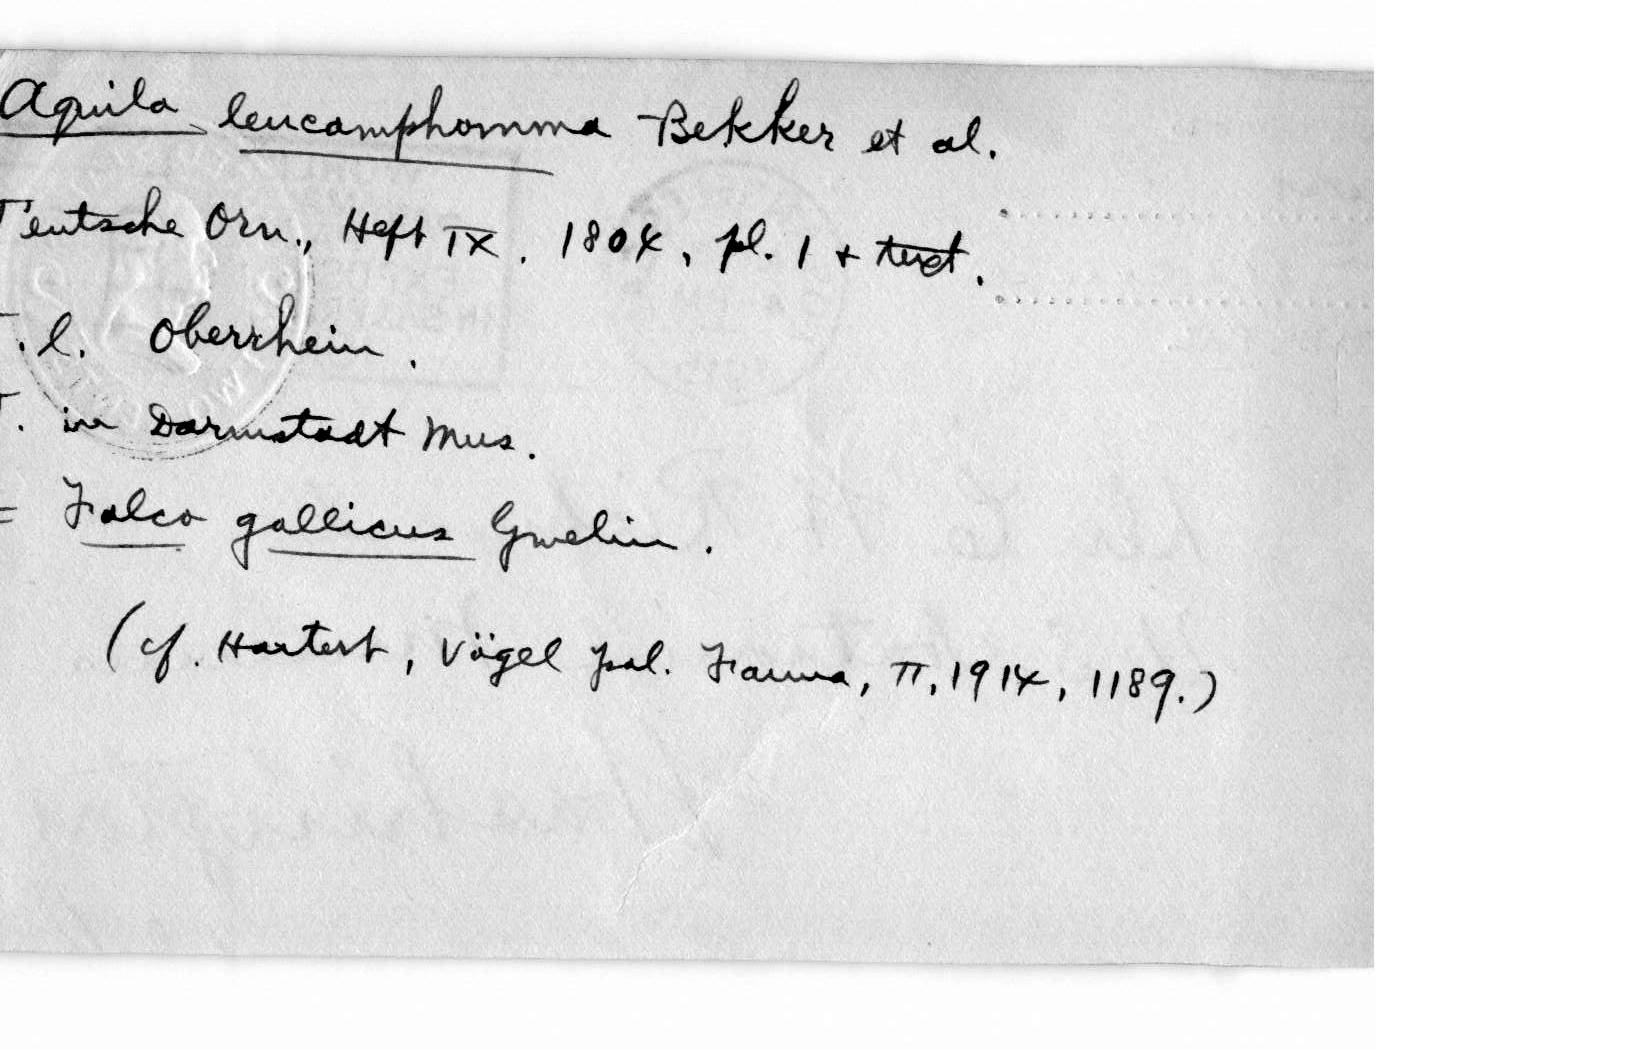 Aquila leucamphomma Bekker et al.
Teutsche Orn., Heft IX. 1804, pl. 1 + text.
T. l. Oberrhein.
T. in Darmstadt Mus.
= Falco gallicus Gmelin.
(cf. Hartert, Vögel pal. Fauna, II, 1914, 1189.)